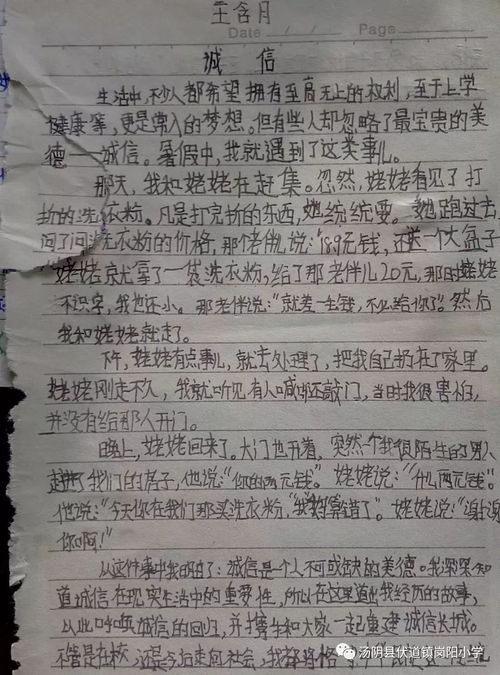 王含月
Date / / Page
诚 信
生活中，不少人都希望拥有至高无上的权利，至于上学
健康等，更是常人的梦想。但有些人却忽略了最宝贵的美
德——诚信。暑假中，我就遇到了这类事儿。
那天，我和姥姥在赶集。忽然，姥姥看见了打
折的洗衣粉。凡是打完折的东西，她统统要。她跑过去
问了问洗衣粉的价格，那个老伴儿说：“18.9元钱，还送一个大盆子
姥姥就拿了一袋洗衣粉，给了那老伴儿20元，那时姥姥
不识字，我也还小。那老伴说：“就差一毛钱，不必给你了”。然后
我和姥姥就走了。
下午，姥姥有点事儿，就去处理了，把我自己扔在了家里。
姥姥刚走不久，我就听见有人喊还敲门，当时我很害怕，
并没有给那人开门。
晚上，姥姥回来了。大门也开着，突然个我很陌生的男人
进了我们的房子，他说：“你的两元钱”。姥姥说：“什么两元钱”。
他说：“今天你在我们那买洗衣粉，“我算错了”。姥姥说：“谢谢
你啊！”
从这件事中我明白了：诚信是个人不可或缺的美德。我深深知
道诚信在现实生活中的重要性，所以在这里道出我经历的故事，
以此呼唤诚信的回归，并携手和大家一起重建诚信长城。
不管是在校，还是今后走向社会，我都将格
汤阴县伏道镇岗阳小学